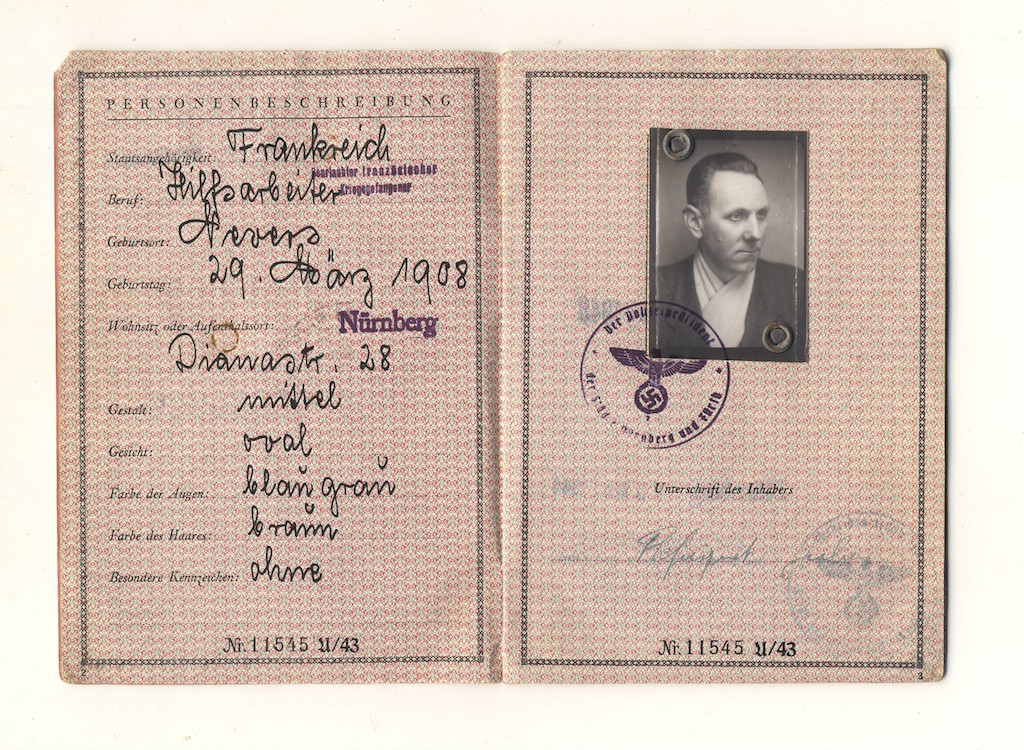 PERSONENBESCHREIBUNG
Staatsangehörigkeit: Frankreich
beurlaubter französischer
Kriegsgefangener
Beruf: Hilfsarbeiter
Geburtsort: Nevers
Geburtstag: 29. März 1908
Wohnsitz oder Aufenthaltsort: Nürnberg
Dianastr. 28
Gestalt: mittel
Gesicht: oval
Farbe der Augen: blaugrau
Farbe des Haares: braun
Besondere Kennzeichen: ohne
Nr. 11545 U/43
2
Der Polizeipräsident
der Städte Nürnberg und Fürth
Unterschrift des Inhabers
Nr. 11545 U/43
3